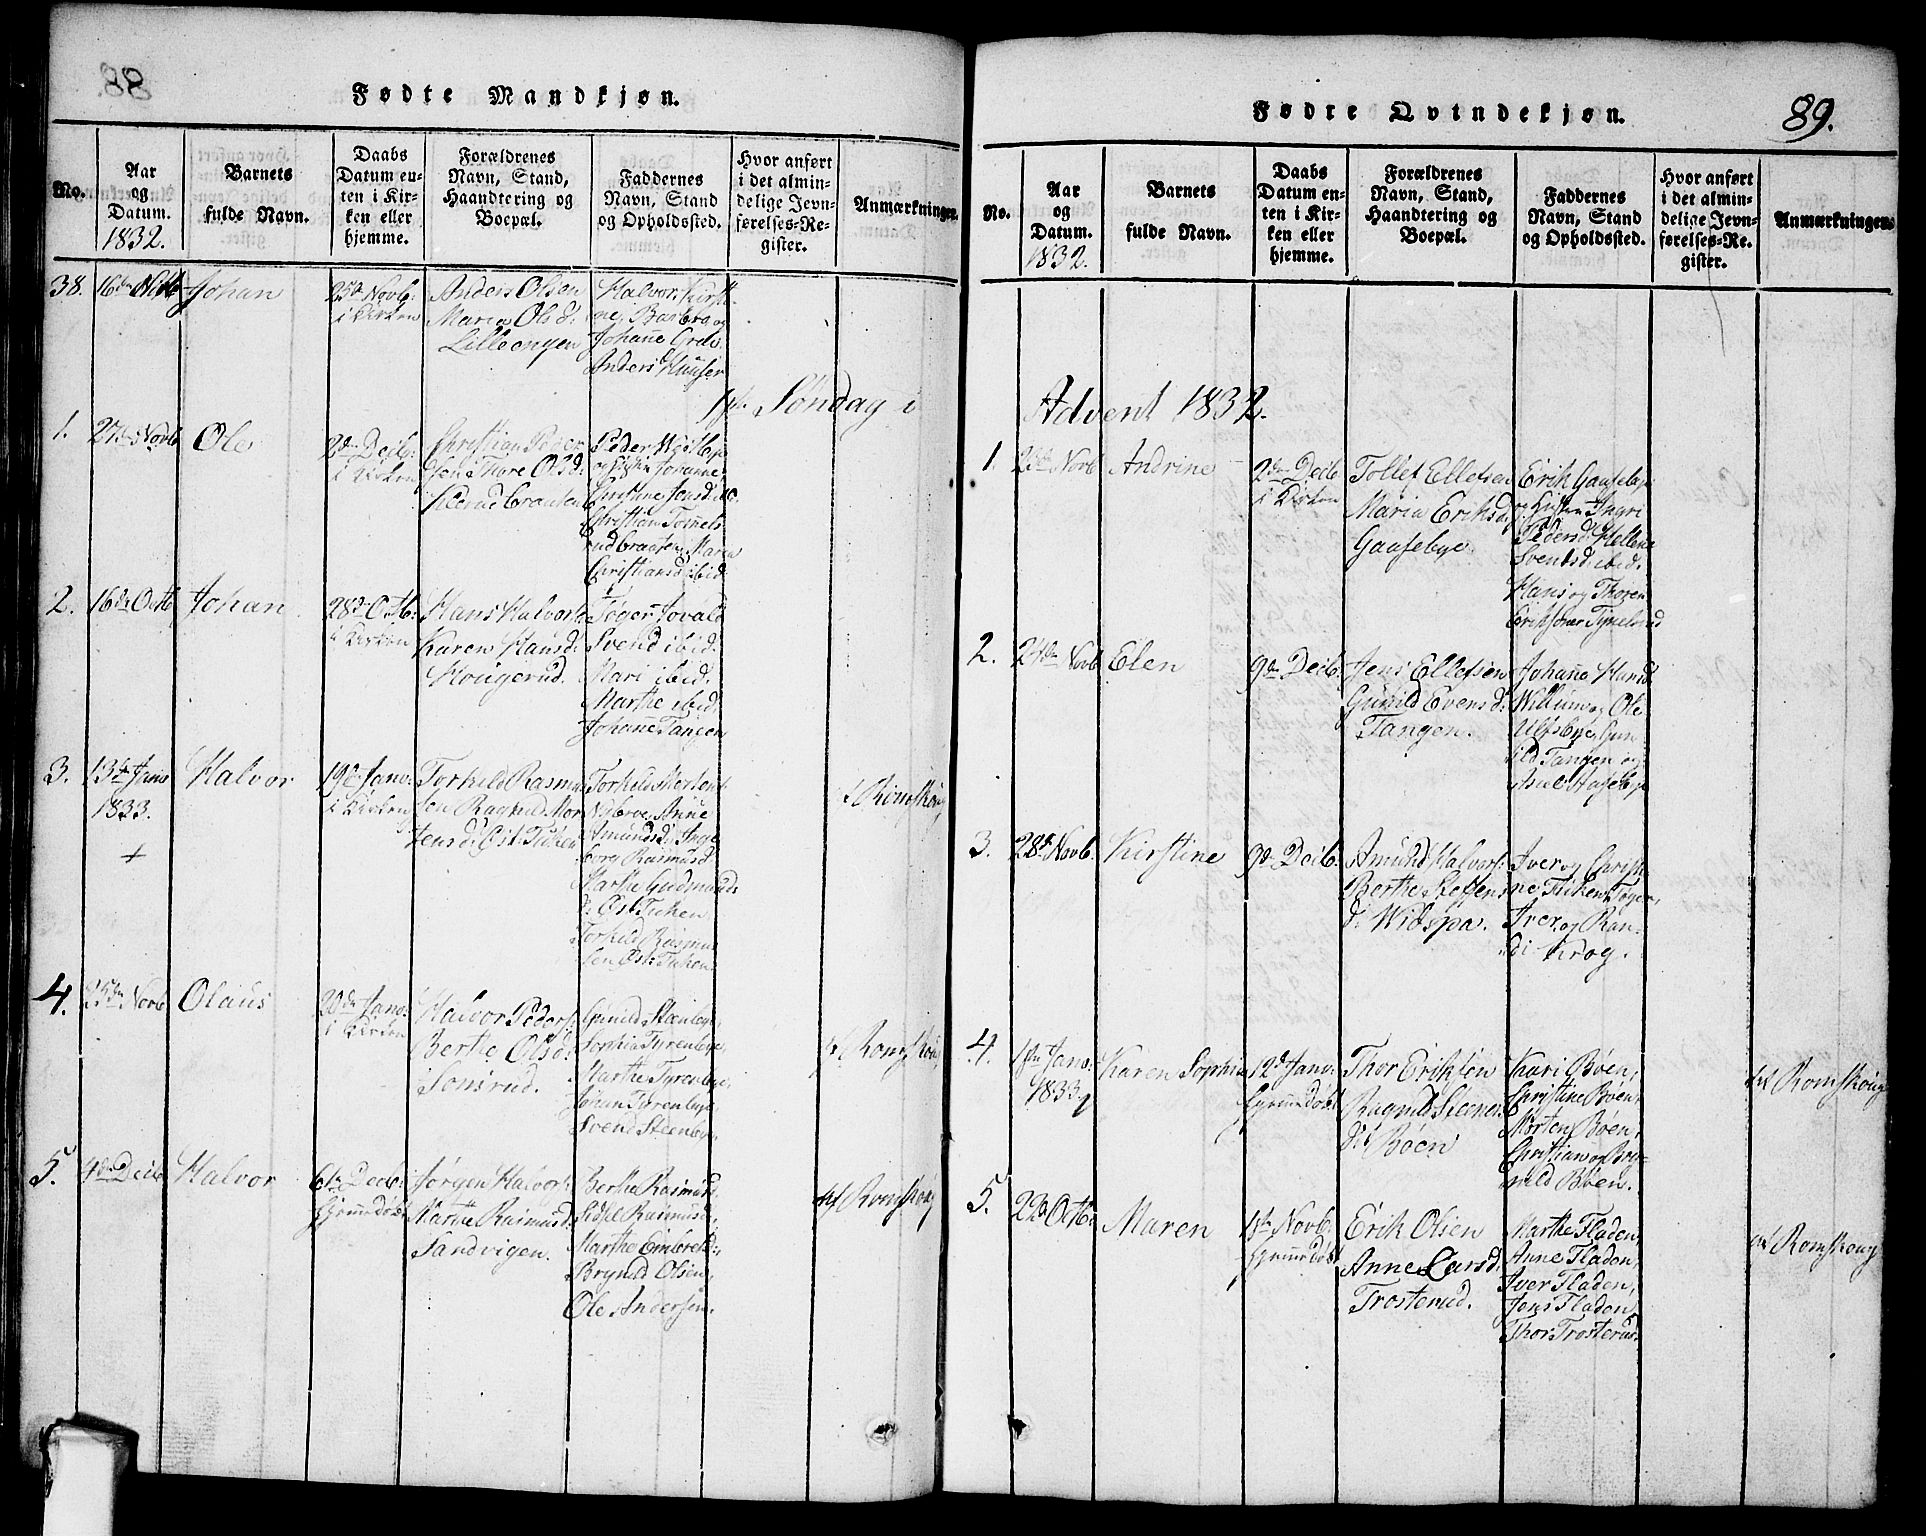 88.
Fødte Mandkjøn.
No.
Aar
og
Datum.
1832.
Barnets
fulde Navn.
Daabs
Datum en-
ten i Kir-
ken eller
hjemme.
Forældrenes
Navn, Stand,
Haandtering og
Boepæl.
Faddernes
Navn, Stand
og Opholdssted.
Hvor anført
i det almin-
delige Jevn-
førelses-Re-
gister.
Anmærkninger.
38.
Johan
25de Novb:
i Kirken
Anders Olsen
Maria Olsd:
Lilleengen
Halvor, Kirsti-
ne, Barbro og
Johanne
Anders
1ste Søndag i
1.
27de Novb
Ole
2den Decb:
i Kirken
Christian Peder
sen Thore Olsd:
Peder
Johanne
Christine Jensd:
Christian
Maren
Christiansd: ibid.
2.
16de Octb
Johan
28de Octb:
i Kirken
Hans Halvors:
Karen Hansd:
Kougerud.
Svend ibid.
Mari ibid.
Marthe ibid.
Johanne Tangen
3.
13de
1833.
+
Halvor
19de Janv:
i Kirken
Torkild Rasmu
sen Ragnild Mor
tensd: Øst: Tuken
Torkild Mortens:
Nybroe, Anne
Amundsd: Inge
borg Rasmusd
Marthe Gudmunds
d: Øst Tuken
Torkild Rasmus
sen Øst: Tuken.
Romskoug
4.
25de Novb
Olaus
20de Janv:
i Kirken
Halvor Peders:
Berthe Olsd:
Sonsrud.
Gunild Steenbye,
Sophia Tyrenbye,
Marthe Tyrenbye,
Johan Tyrenbye,
Svend Steenbye
Romskoug
5.
4de Decb
Halvor
6te Decb:
Jørgen Halvors:
Marthe Rasmusd.
Sandvigen.
Berthe Rasmusd.
Sidsel Rasmusd:
Marthe Embretsd:
Brynild Olsen,
Ole Andersen.
Romskoug
Fødte Qvindekjøn.
89.
No.
Aar
og
Datum.
1832.
Barnets
fulde Navn.
Daabs
Datum en-
ten i Kir-
ken eller
hjemme.
Forældrenes
Navn, Stand,
Haandtering og
Boepæl.
Faddernes
Navn, Stand
og Opholdssted.
Hvor anført
i det almin-
delige Jevn-
førelses-Re.
gister.
Anmærkninger
Advent 1832.
1.
Novb
Andrine
2den Decb
i Kirken
Tollef Ellefsen
Maria Eriksd:
Gaasebye.
Erik Gaasebye
Ingri
Pedersd: Hellene
Svendsd: ibid.
Hans og Thoren
2.
24de Novb
Elen
9de Decb.
Jens Ellefsen
Gunild Evensd:
Tangen.
Johanne Hansd
Willum og Ole
Ulfsbye, Gun
ild Tangen og
3.
28de Novb.
Kirstine
9de Decb.
Amund Halvors:
Berthe Steffens
d: Widspa.
Iver og Christi
ne Tuken, Tøger,
Iver og Ran-
di Krog.
4.
1ste Janv:
1833
Karen Sophia
12de Janv:
Thor Eriksen
Ragnild Steene
d: Bøen
Kari Bøen,
Christine Bøen,
Morten Bøen,
Christian og Bry-
nild Bøen.
Romskoug
5.
22de Octb
Maren
1ste Novb.
Erik Olsen
Anne Larsd:
Trosterud.
Marthe Fladen,
Anne Fladen,
Iver Fladen,
Jens Fladen,
Thor Trosterud.
Romskoug